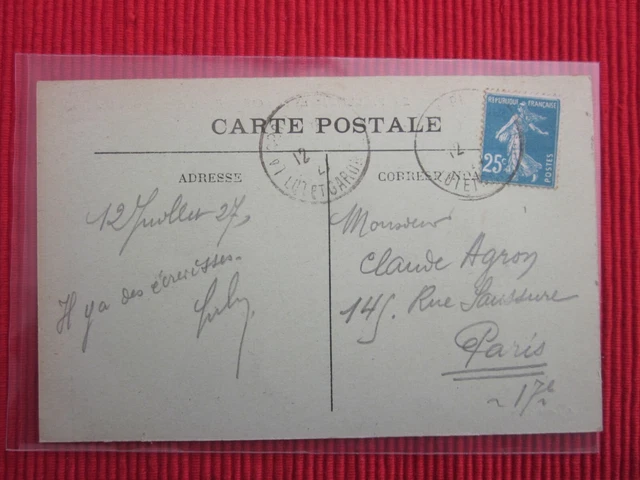 CARTE POSTALE
ADRESSE
12 Juillet 27,
Il y a des écrevisses.
12
LOT ET GARONNE
RÉPUBLIQUE FRANÇAISE
25c
POSTES
12
LOT ET
Monsieur
Claude Agron
145. Rue Saussure
Paris
17e